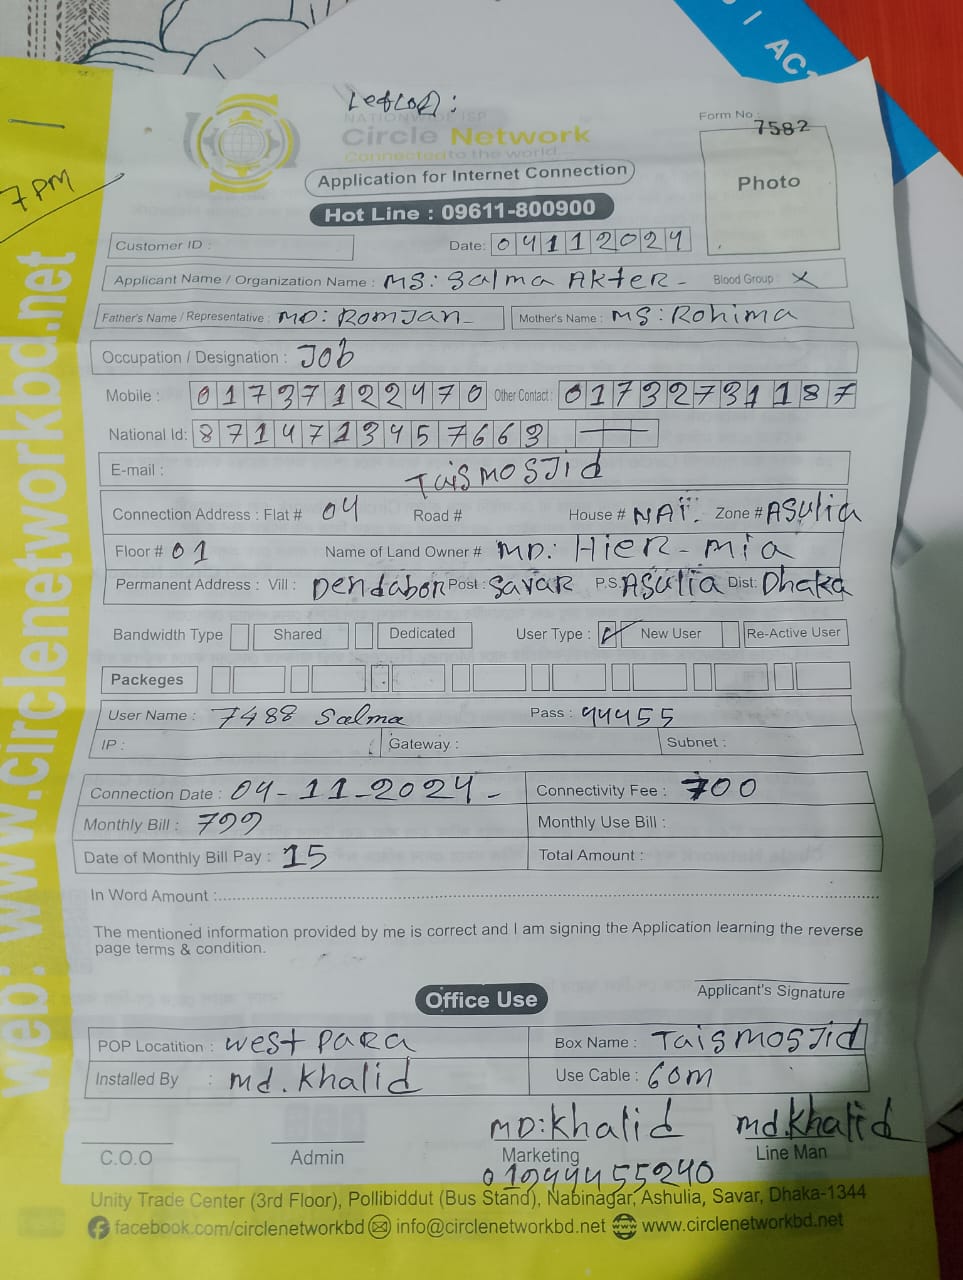 NATIONWIDE ISP
Circle Network
Connected to the world
Form No. 7582
Application for Internet Connection
Photo
Hot Line : 09611-800900
7 PM
Customer ID :
Date: 04112024
Applicant Name / Organization Name : MS: Salma AKteR - Blood Group : X
Father's Name / Representative : MD: ROMJan
Mother's Name : MS: Rohima
Occupation / Designation : JOB
Mobile : 01737122470 Other Contact : 01732731187
National Id: 8714713457663
E-mail :
TaisMOSJid
Connection Address : Flat # 04 Road # House # NAI. Zone # ASulia
Floor # 01 Name of Land Owner # MD: HieR-mia
Permanent Address : Vill : Dendabor Post : SavaR P.S ASulia Dist: Dhaka
Bandwidth Type Shared Dedicated User Type : New User Re-Active User
Packeges
User Name : 7488 Salma Pass : 44455
IP : Gateway : Subnet :
Connection Date : 04-11-2024- Connectivity Fee : 700
Monthly Bill : 799 Monthly Use Bill :
Date of Monthly Bill Pay : 15 Total Amount :
In Word Amount :
The mentioned information provided by me is correct and I am signing the Application learning the reverse
page terms & condition.
Applicant's Signature
Office Use
POP Locatition : West PaRa Box Name : TaisMOSJid
Installed By : md. Khalid Use Cable : 60M
MD: Khalid md. Khalid
C.O.O Admin Marketing Line Man
01944455240
Unity Trade Center (3rd Floor), Pollibiddut (Bus Stand), Nabinagar, Ashulia, Savar, Dhaka-1344
facebook.com/circlenetworkbd info@circlenetworkbd.net www.circlenetworkbd.net
web: www.circlenetworkbd.net